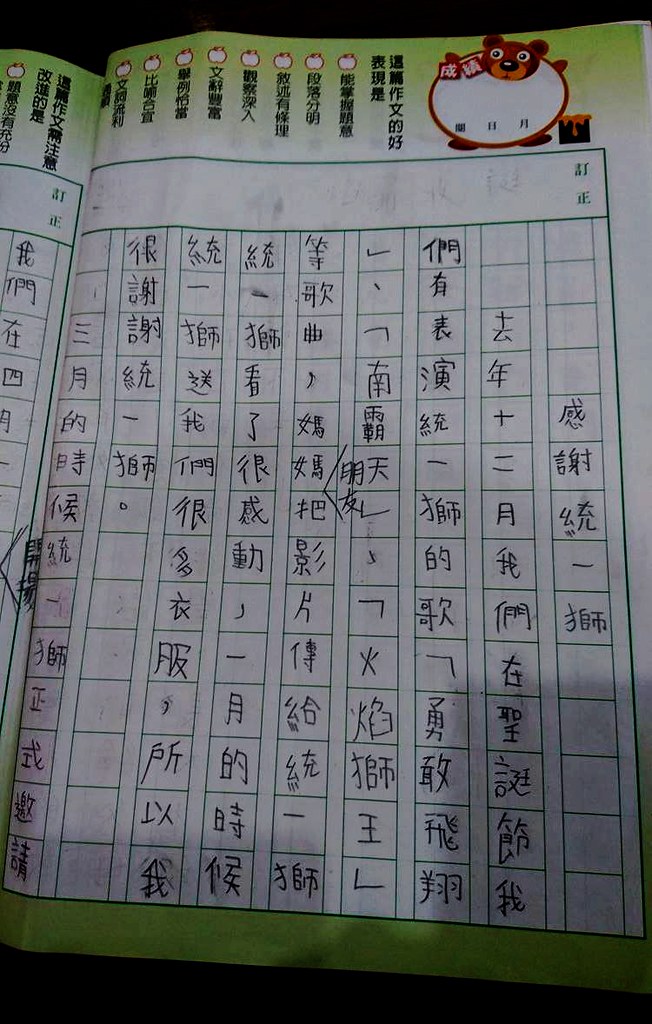 成績
月
日
訂正
這篇作文的好表現是
能掌握題意
段落分明
敘述有條理
觀察深入
文辭豐富
舉例恰當
比喻合宜
文詞流利
感謝統一獅
去年十二月我們在聖誕節我
們有表演統一獅的歌「勇敢飛翔
」、「南霸天」、「火焰獅王」
朋友
等歌曲,媽媽把影片傳給統一獅
統一獅看了很感動,一月的時候
統一獅送我們很多衣服,所以我
很謝謝統一獅。
三月的時候統一獅正式邀請
開場
這篇作文需注意改進的是
題意沒有充分
訂正
我們在四月一